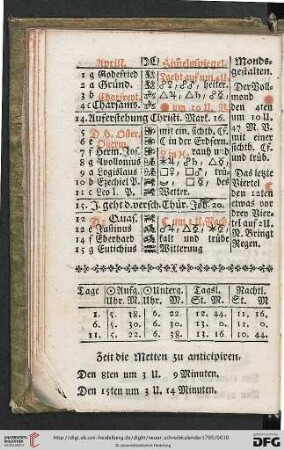 Aprill. Himmelsspiegel. Monds-
gestalten.
1 g Godefried
2 a Gründ. heiter.
3 b Charfreyt.
4 c Charsams. um 10 U. V.
Der Voll-
mond
den 4ten
um 10 U.
47 M. V.
mit einer
sichtb. Cf.
und trüb.
14. Auferstehung Christi. Mark. 16.
5 D H. Oster. mit ein. sichtb. Cf.
6 e Osterm. in der Erdfern.
7 f Herm. Jos.
8 g Apollonius
9 a
10 b Ezechiel P.
11 c Leo I. P. Wetter.
Das letzte
Viertel
den 12ten
etwas vor
drey Vier-
tel auf 2 U.
N. Bringt
Regen.
15. J. geht d. versch. Thür. Joh. 20.
12 Quas. um 1 U. Nach.
13 e Justinus
14 f Eberhard kalt und trübe
15 g Eutichius Witterung
Tage Aufg. Unterg. Tagsl. Nachtl.
Uhr. M. Uhr. M. St. M. St. M
1. 5. 38. 6. 22. 12. 44. 11. 16.
6. 5. 30. 6. 30. 13. 0. 11. 0.
11. 5. 22. 6. 38. 13. 16. 10. 44.
Zeit die Metten zu anticipiren.
Den 8ten um 3 U. 9 Minuten.
Den 15ten um 3 U. 14 Minuten.
UNIVERSITÄTS-
BIBLIOTHEK
HEIDELBERG
http://digi.ub.uni-heidelberg.de/diglit/neuer_schreibkalender1795/0010
© Universitätsbibliothek Heidelberg
gefördert durch die
DFG